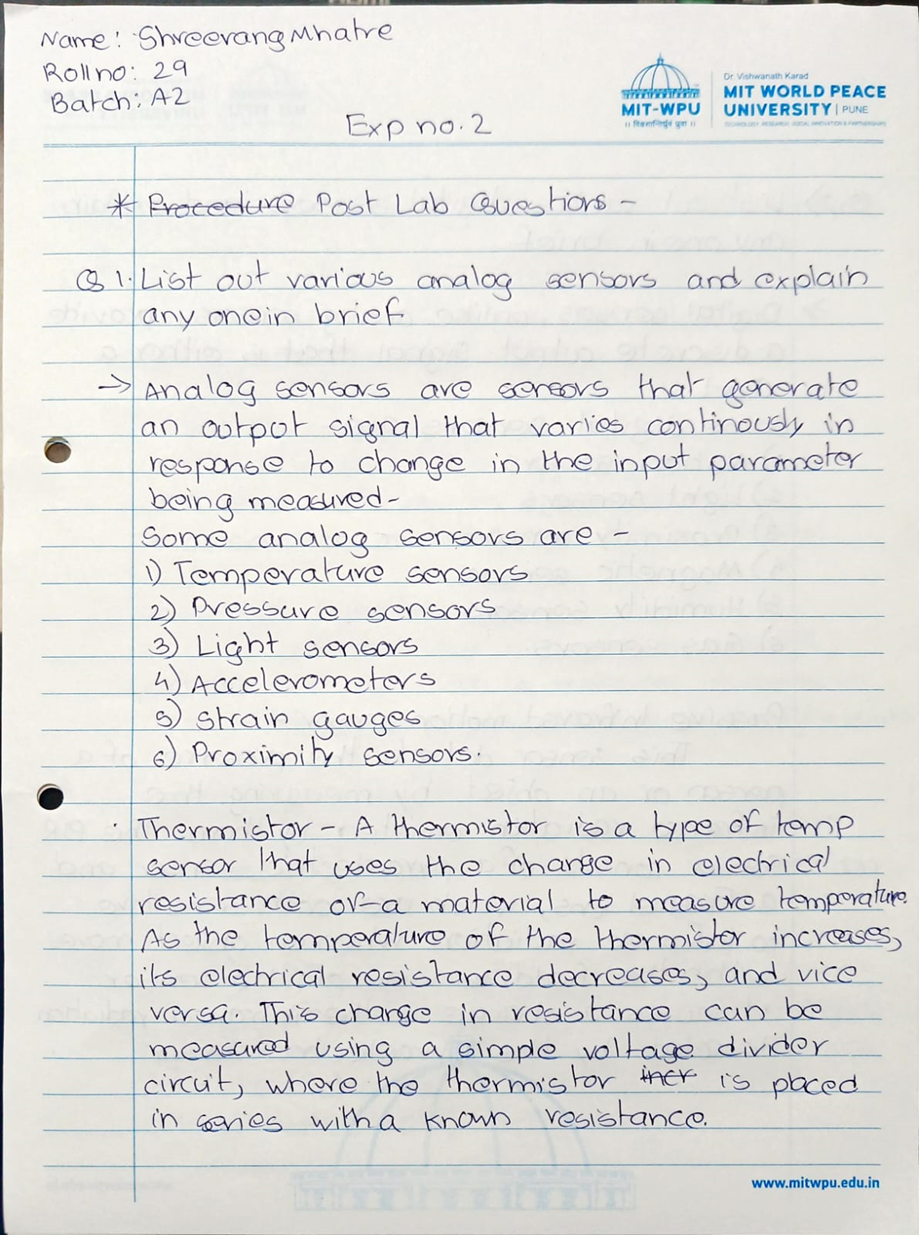 Name: Shreerang Mhatre
Roll no: 29
Batch: A2
Dr. Vishwanath Karad
MIT WORLD PEACE
UNIVERSITY | PUNE
TECHNOLOGY, RESEARCH, SOCIAL INNOVATION & PARTNERSHIPS
MIT-WPU
॥ विश्वशान्तिर्ध्रुवं ध्रुवा ॥
Exp no. 2
* Procedure Post Lab Questions -
Q 1. List out various analog sensors and explain
any one in brief
→ Analog sensors are sensors that generate
an output signal that varies continously in
response to change in the input parameter
being measured-
Some analog sensors are -
1) Temperature sensors
2) Pressure sensors
3) Light sensors
4) Accelerometers
5) Strain gauges
6) Proximity sensors.
· Thermistor - A thermistor is a type of temp
sensor that uses the change in electrical
resistance of a material to measure temperature.
As the temperature of the thermistor increases,
its electrical resistance decreases, and vice
versa. This change in resistance can be
measured using a simple voltage divider
circuit, where the thermistor incr is placed
in series with a known resistance.
www.mitwpu.edu.in